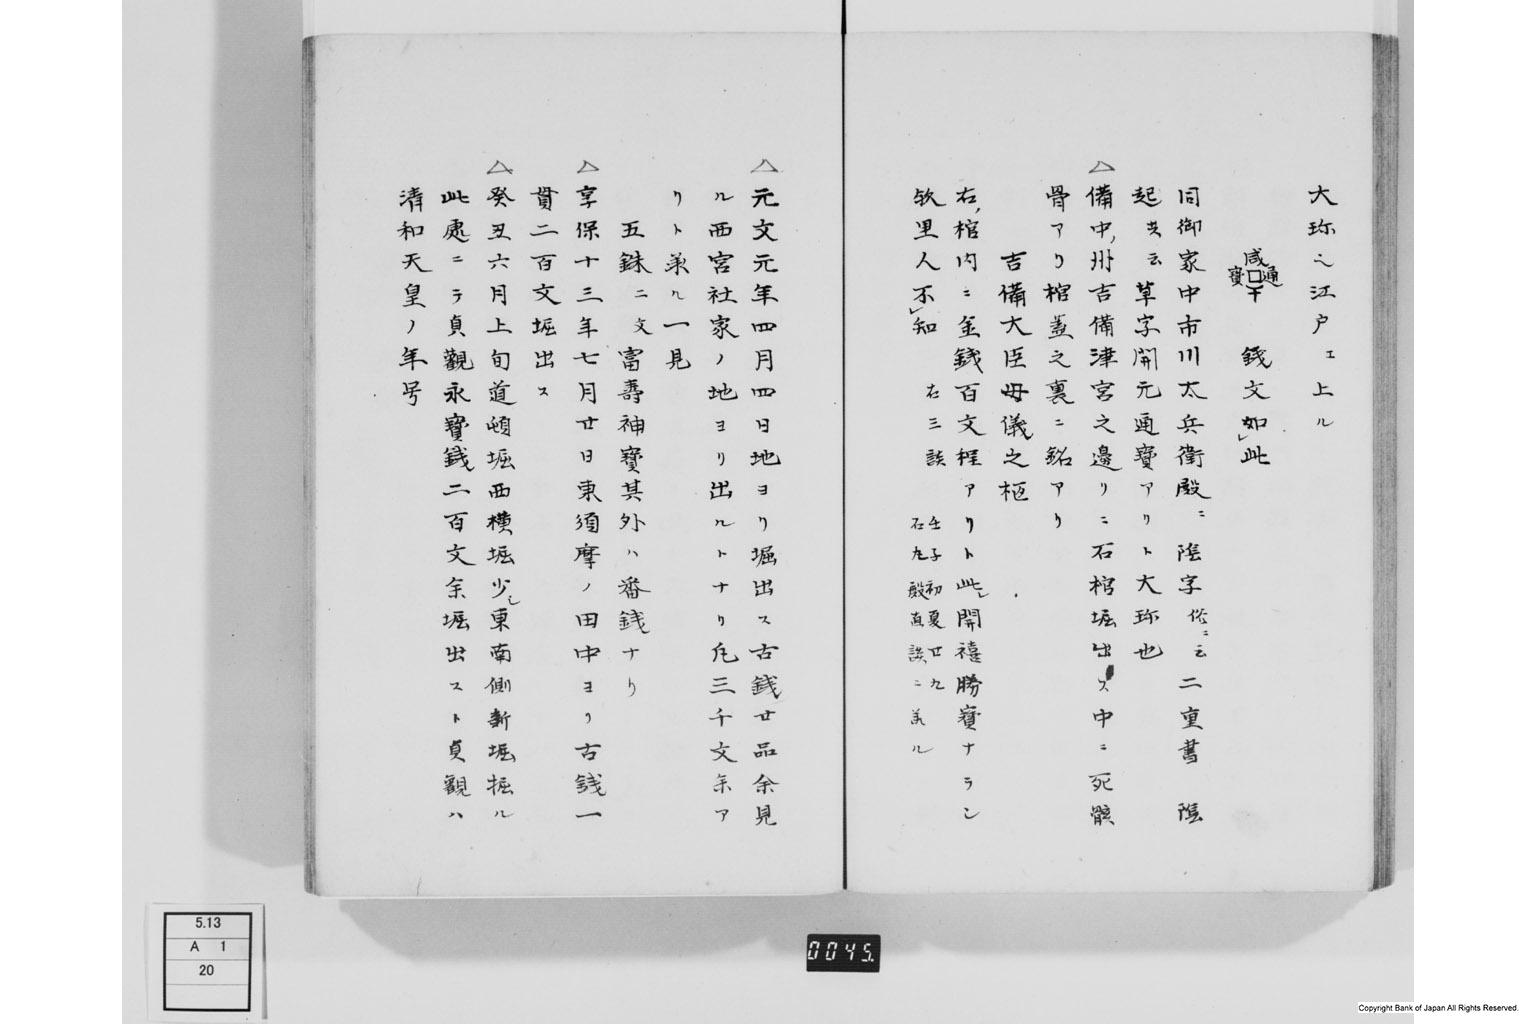 大珎之江戸ェ上ル
咸通
寳
干
銭文如此
同御家中市川太兵衛殿ニ陰字俗ニ云二重書陰
起共云草字開元通寳アリト大珎也
△備中州吉備津宮之邊リニ石棺堀出ス中ニ死骸
骨アリ棺蓋之裏ニ銘アリ
吉備大臣母儀之柩
右棺内ニ金銭百文程アリト此開禧勝寳ナラン
欤里人不知 右三談 壬子初夏廿九
石丸殿直談ニ兼ル
△元文元年四月四日地ヨリ堀出ス古銭廿品余見
ル西宮社家ノ地ヨリ出ルトナリ凡三千文余ア
リト兼ル一見
五銖ニ文富壽神寳其外ハ番銭ナリ
△享保十三年七月廿日東須摩ノ田中ヨリ古銭一
貫二百文堀出ス
△癸丑六月上旬道頓堀西横堀少シ東南側新堀掘ル
此處ニテ貞觀永寳銭二百文余堀出スト貞觀ハ
清和天皇ノ年号
5.13
A 1
20
0045.
Copyright Bank of Japan All Rights Reserved.